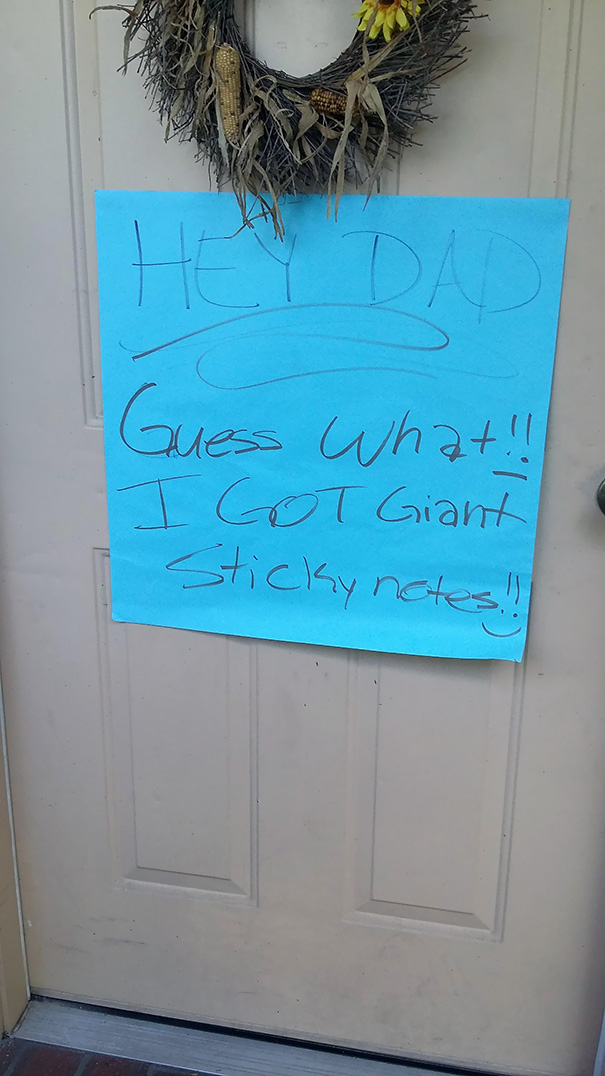 HEY DAD
Guess What!!
I GOT Giant
Sticky notes!!